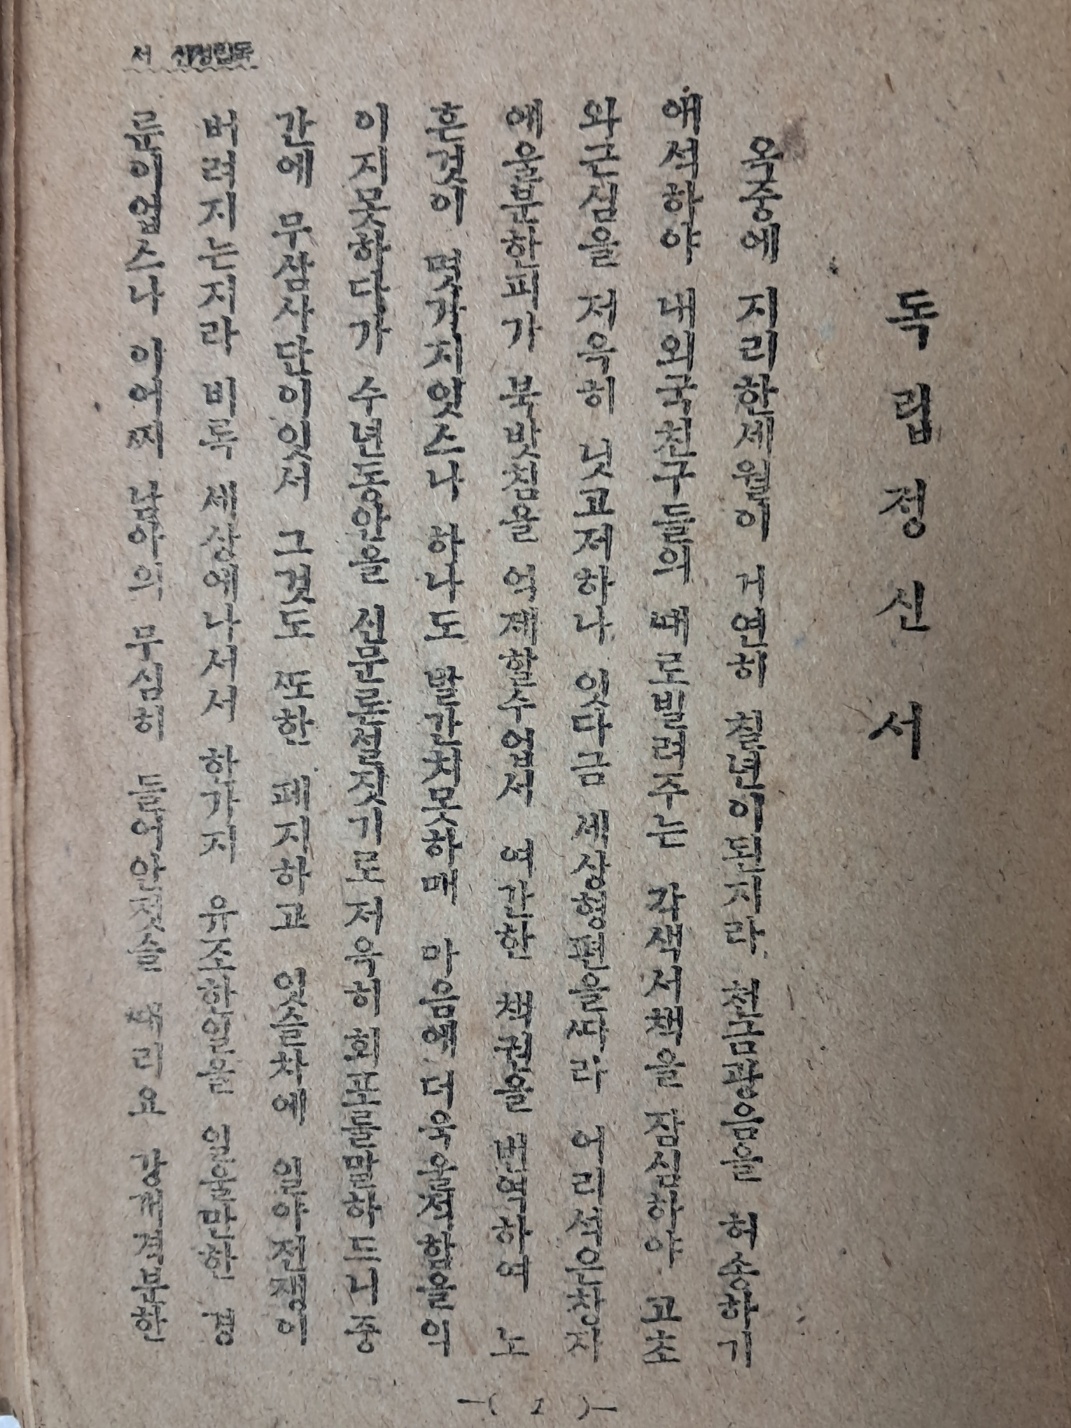 독립정신 서
독립정신서
옥중에 지리한세월이 칠년이된지라 천금광음을 허송하기
내외국친구들의 때로빌려주는 각색서책을 잠심하야 고초
와근심을 저으기 잇고저하나 잇다금 세상형편을따라 어리석은창자
에울분한피가 북밧침을 억제할수업서 약간한 책권을 번역하며
한것이 몃가지잇스나 하나도 발간치못하매 마음에
이지못하다가 수년동안을 신문론설짓기로 저으기 회포를말하더니 중
간에 무삼사단이잇서 그것도 또한 폐지하고 잇슬차에 일아전쟁이
버러지는지라 비록 세상에나서서 한가지 유조한일을 일울만한 경
륜이업스나 이어찌 남아의 무심히 들어안젓슬 때리오 강개격분한